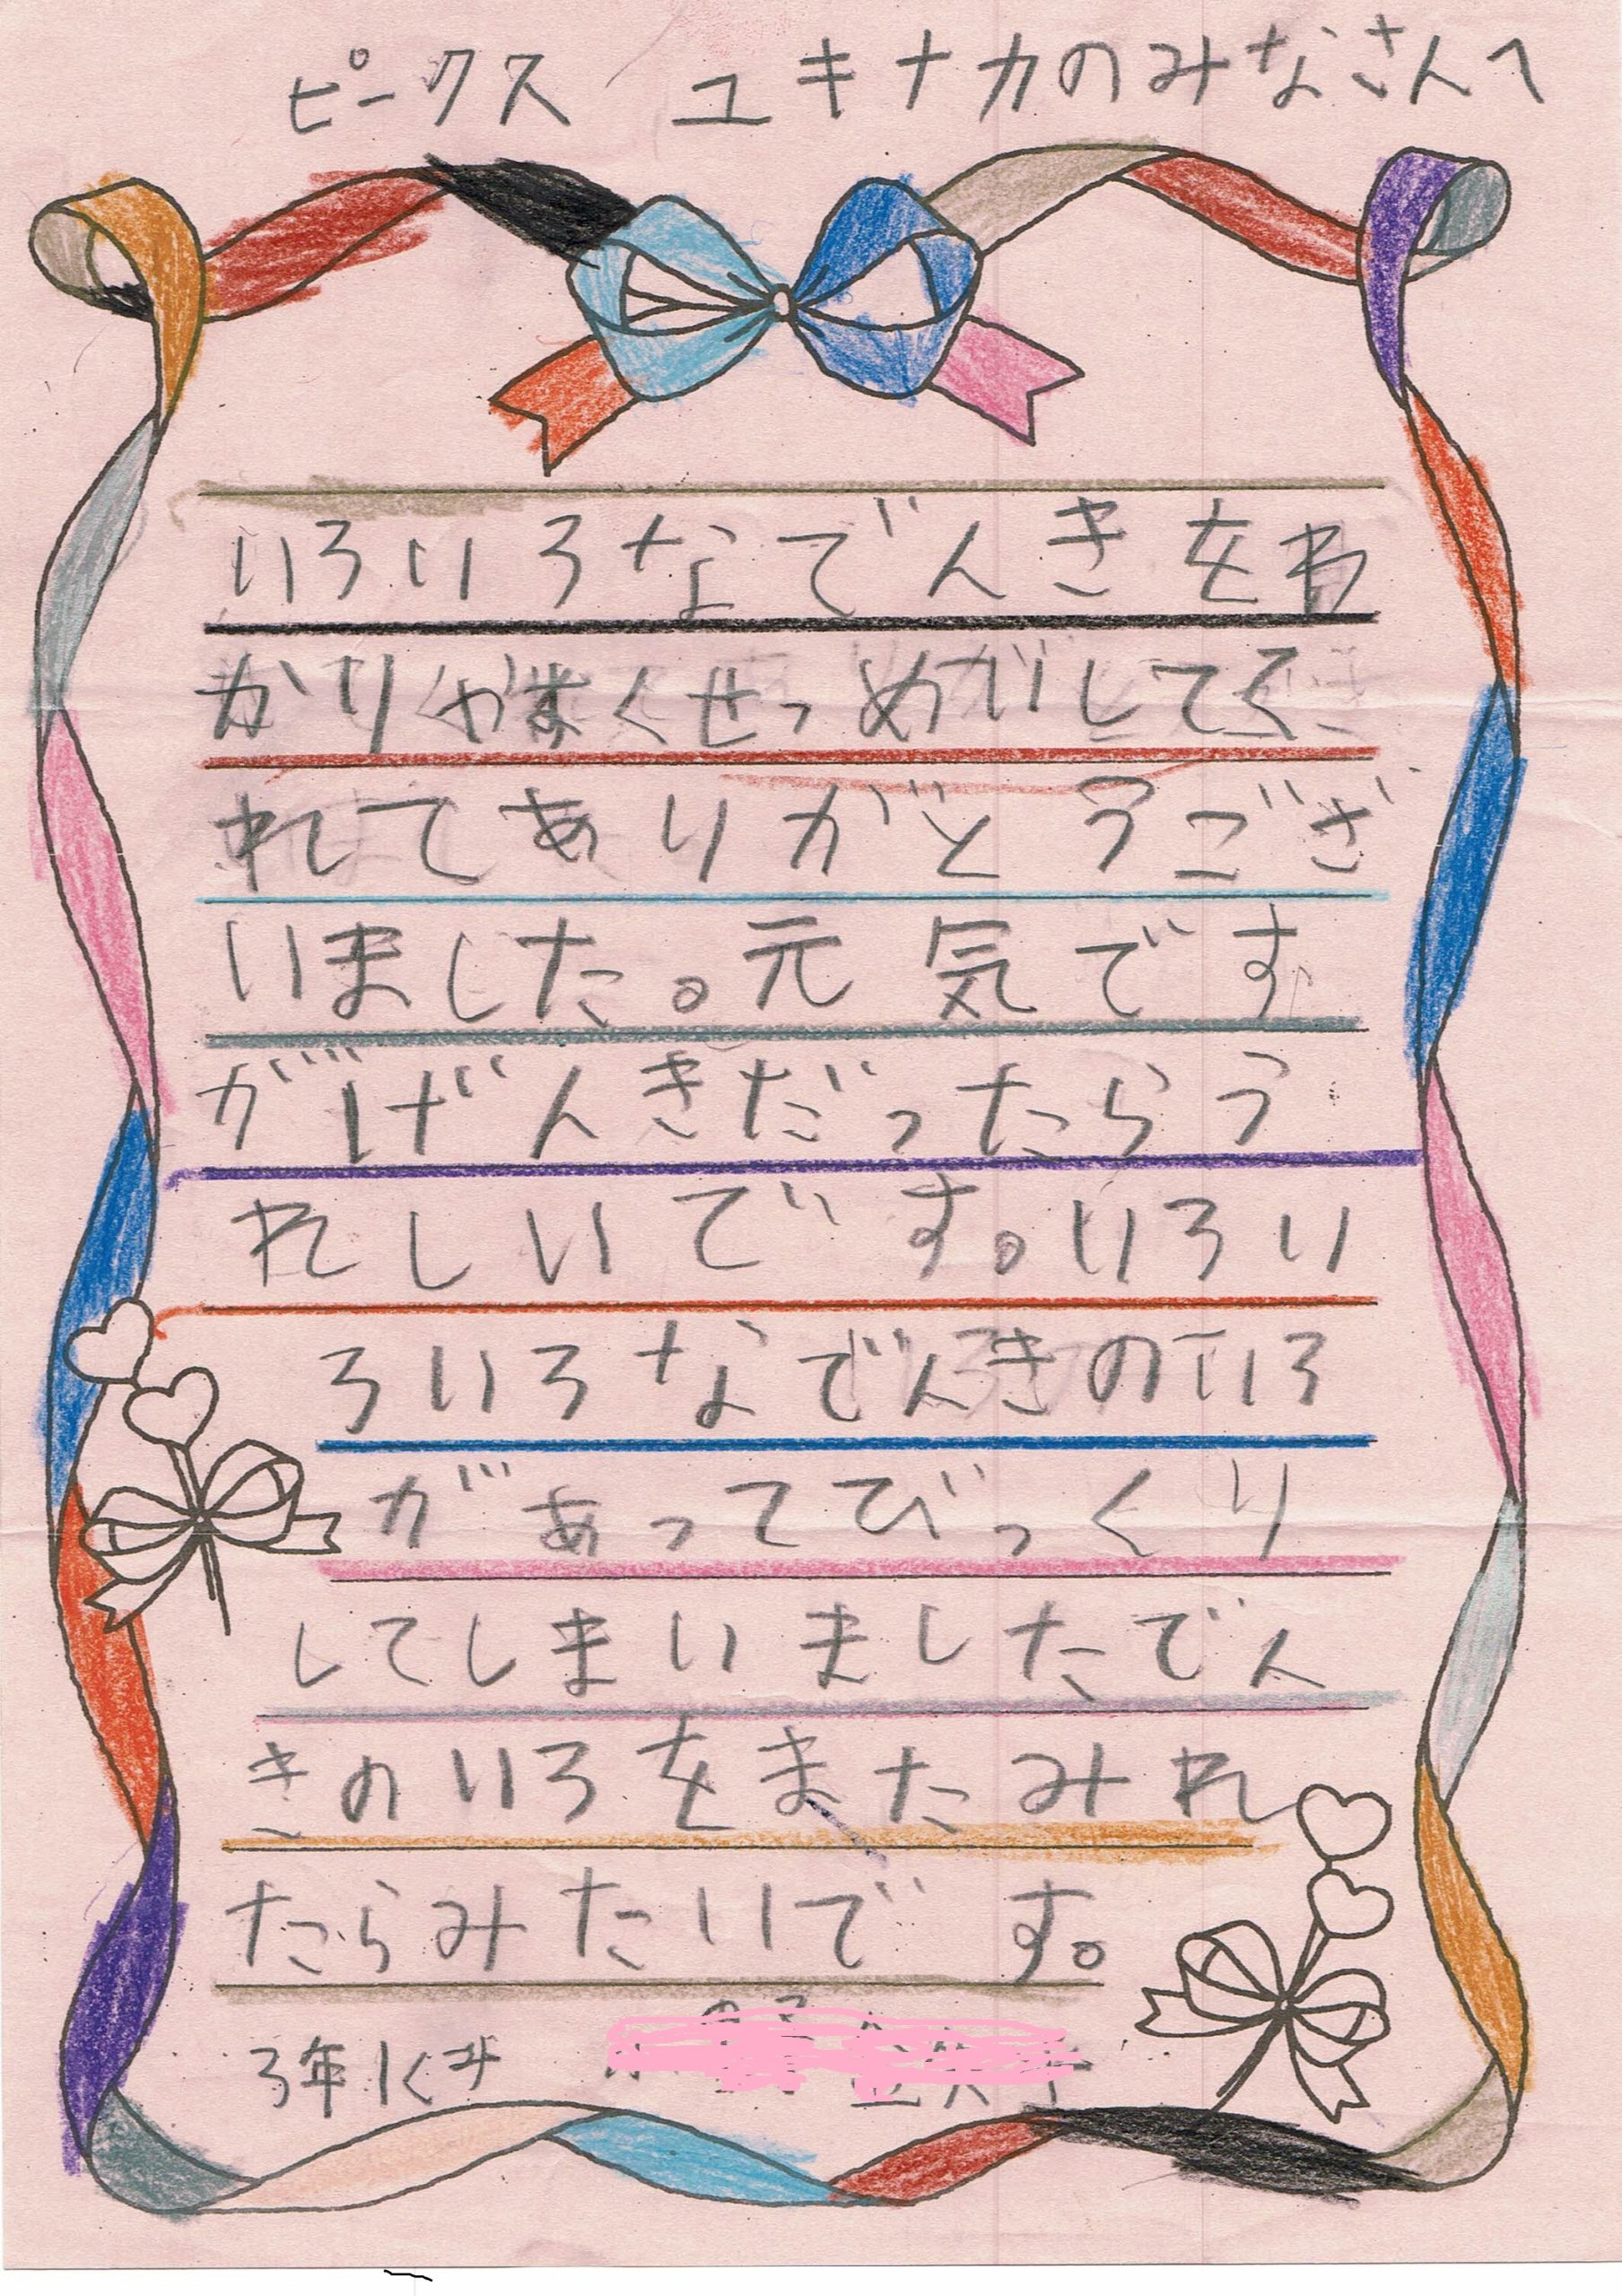 ピークス ユキナカのみなさんへ
いろいろなでんきをわ
かりやすくせつめいしてく
れてありがとうござ
いました。元気です
がげんきだったらう
れしいです。いろい
ろいろなでんきのいろ
があってびっくり
してしまいましたでん
きのいろをまたみれ
たらみたいです。
3年1くみ